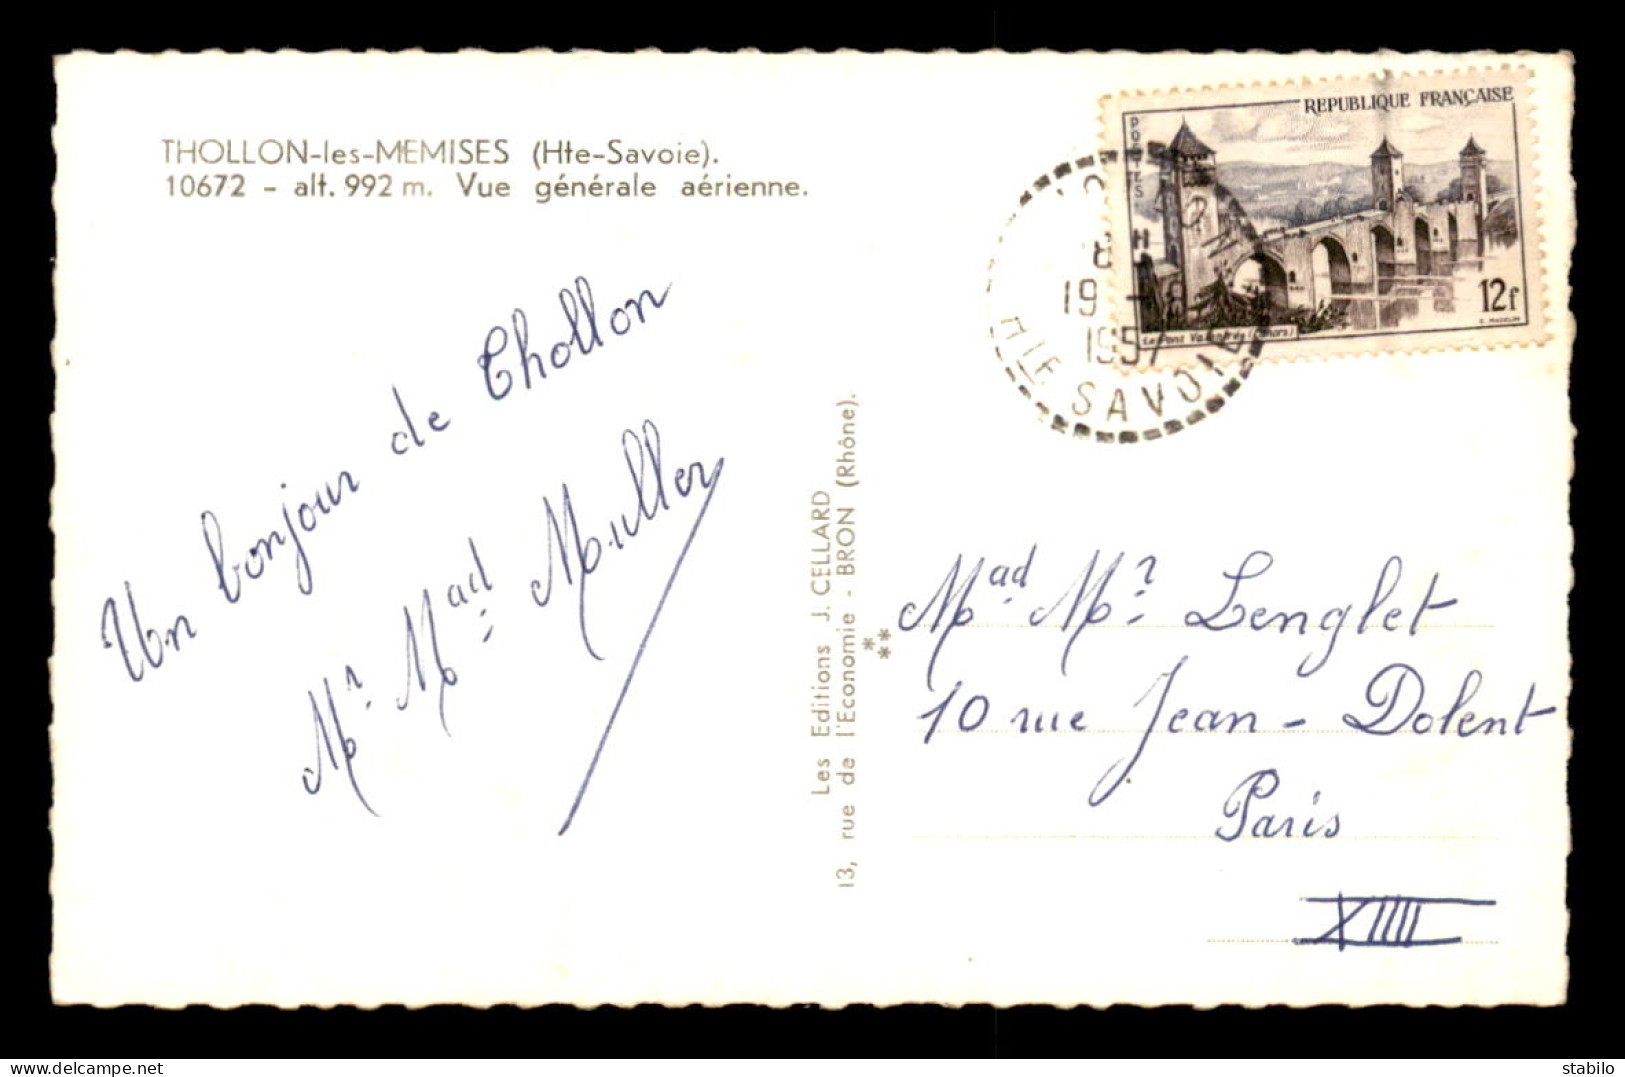 THOLLON-les-MEMISES (Hte-Savoie).
10672 - alt. 992 m. Vue générale aérienne.
Un bonjour de Thollon
Mr. Mad. Muller
Les Editions J. CELLARD
13, rue de l'Economie - BRON (Rhône).
REPUBLIQUE FRANÇAISE
POSTES
12f
Le Pont Valentré (Cahors)
19 - 8
1957
HTE SAVOIE
Mad. Mr. Lenglet
10 rue Jean-Dolent
Paris
XIIII
delcampe.net
zibeline67